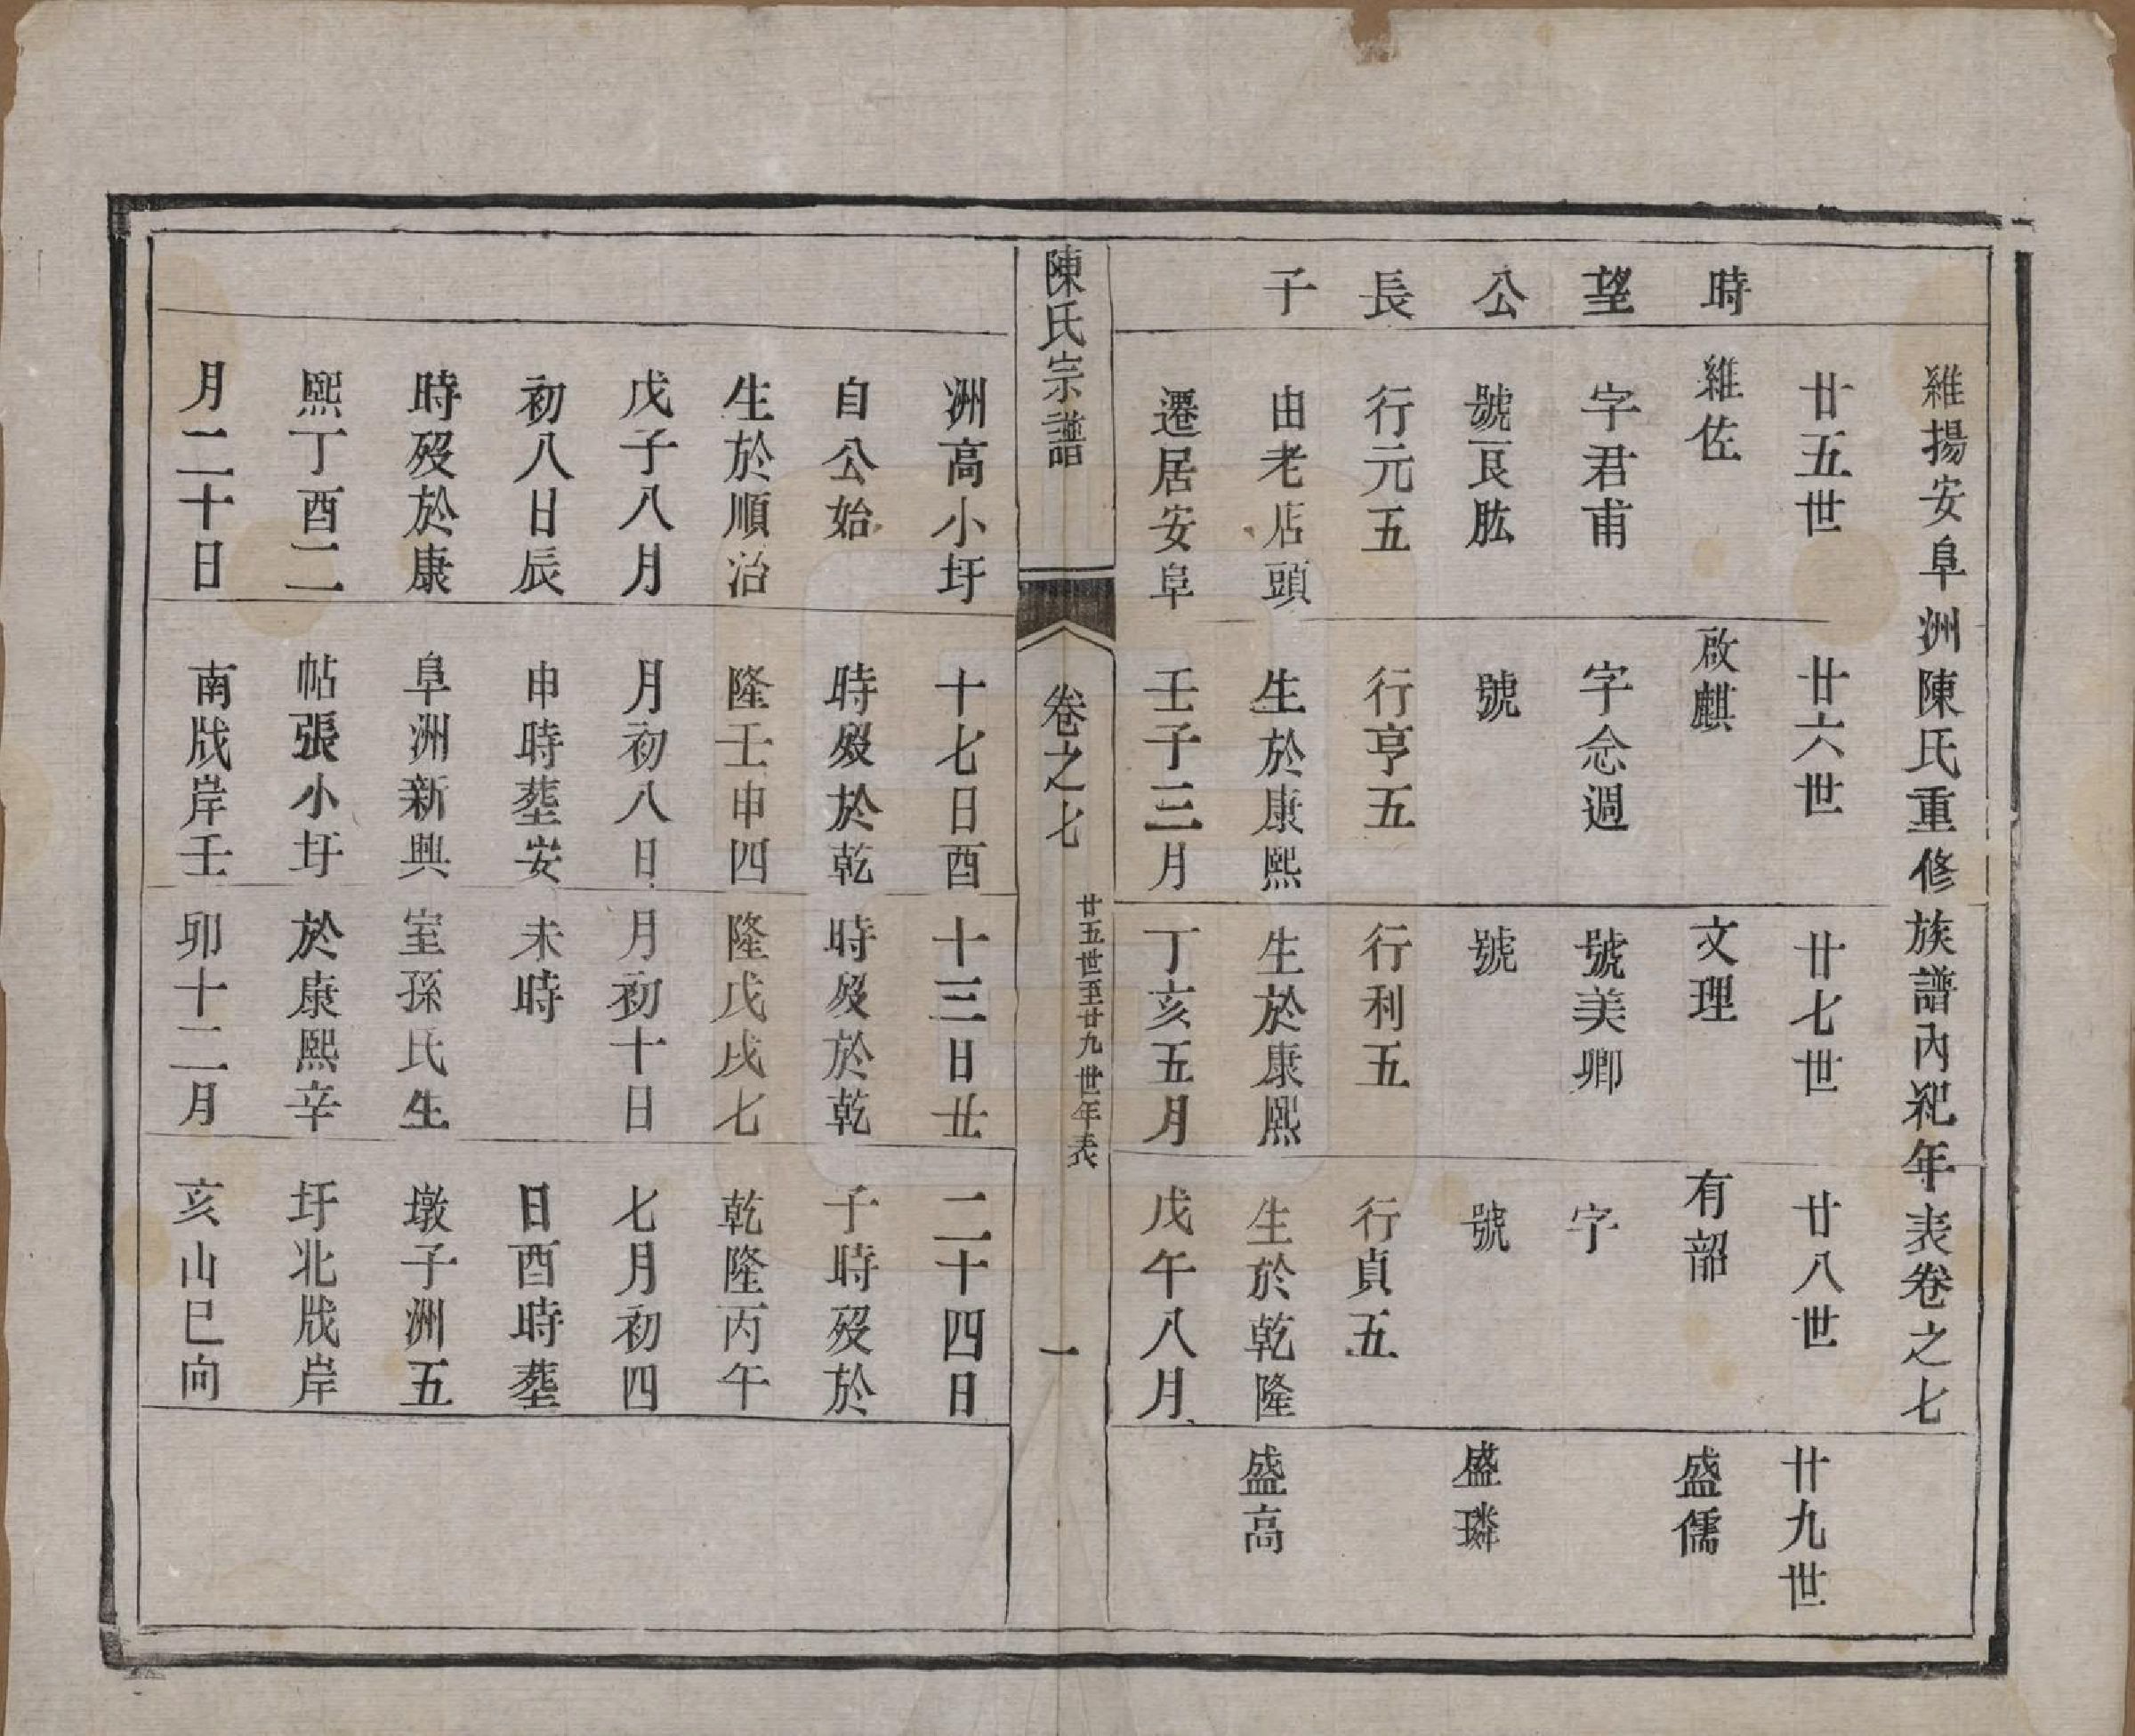 維揚安阜洲陳氏重修族譜內紀年表卷之七
時望公長子
廿五世
維佐
字君甫
號良肱
行元五
由老店頭
遷居安阜
廿六世
啟麒
字念週
號
行亨五
生於康熙
壬子三月
廿七世
文理
號美卿
號
行利五
生於康熙
丁亥五月
廿八世
有韶
字
號
行貞五
生於乾隆
戊午八月
廿九世
盛儒
盛璘
盛高
陳氏宗譜
卷之七
廿五世至廿九世年表
一
洲高小圩
自公始
生於順治
戊子八月
初八日辰
時歿於康
熙丁酉二
月二十日
十七日酉
時歿於乾
隆壬申四
月初八日
申時塟安
阜洲新興
帖張小圩
南戕岸壬
十三日丑
時歿於乾
隆戊戌七
月初十日
未時
室孫氏生
於康熙辛
卯十二月
二十四日
子時歿於
乾隆丙午
七月初四
日酉時塟
墩子洲五
圩北戕岸
亥山巳向